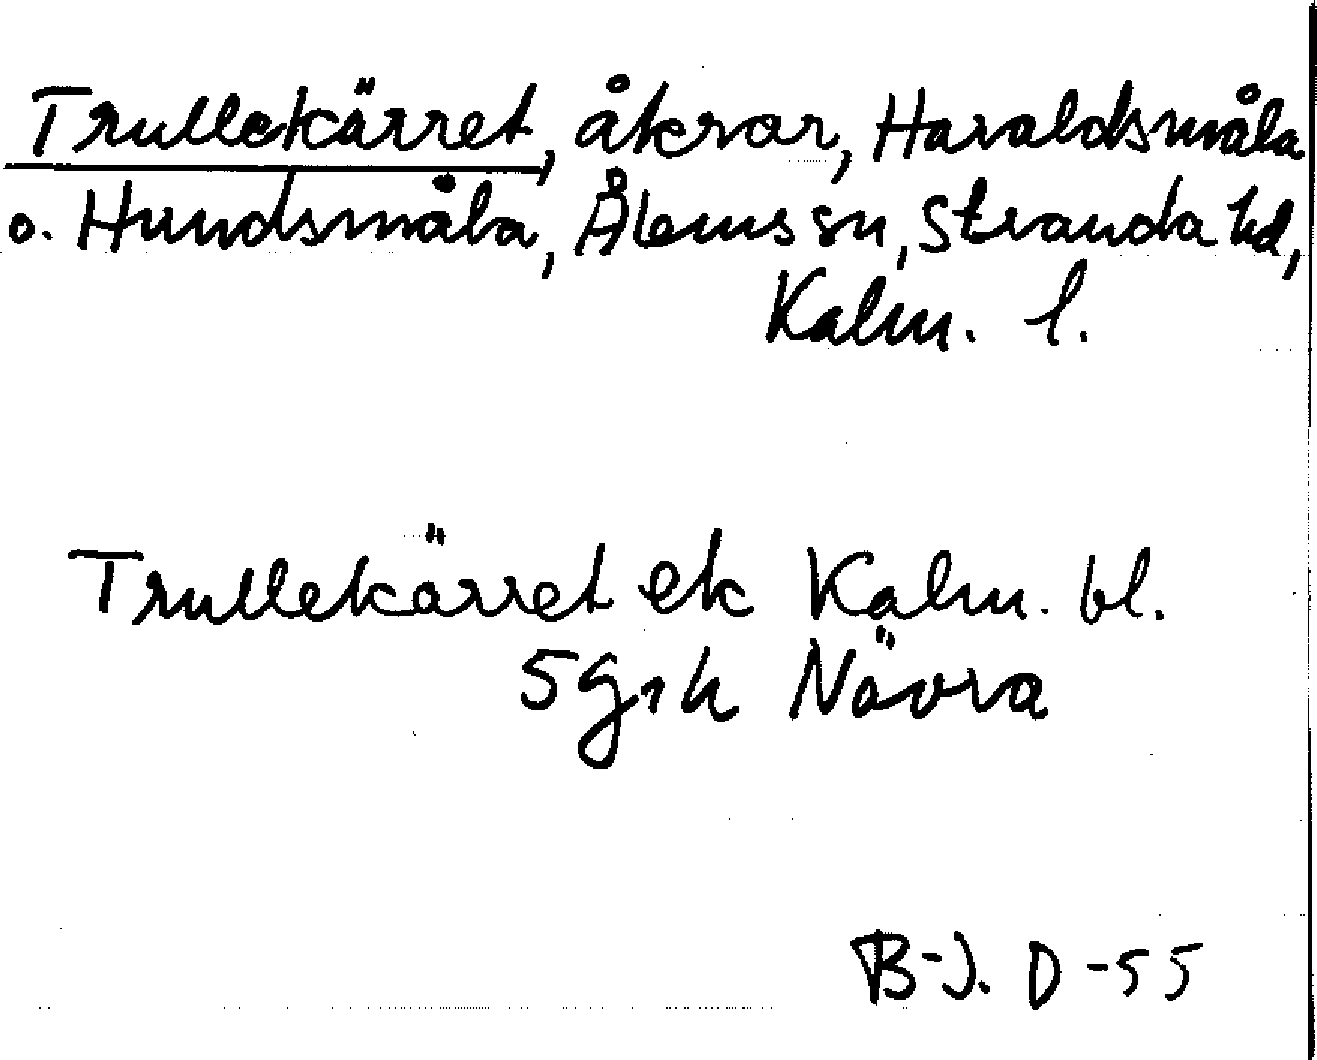 Trullekärret, åkrar, Haraldsmåla
o. Hundsmåla, Ålems sn, Stranda hd,
Kalm. l.
Trullekärret ek Kalm. bl.
5 g 1 h Nävra
B-J. D-55